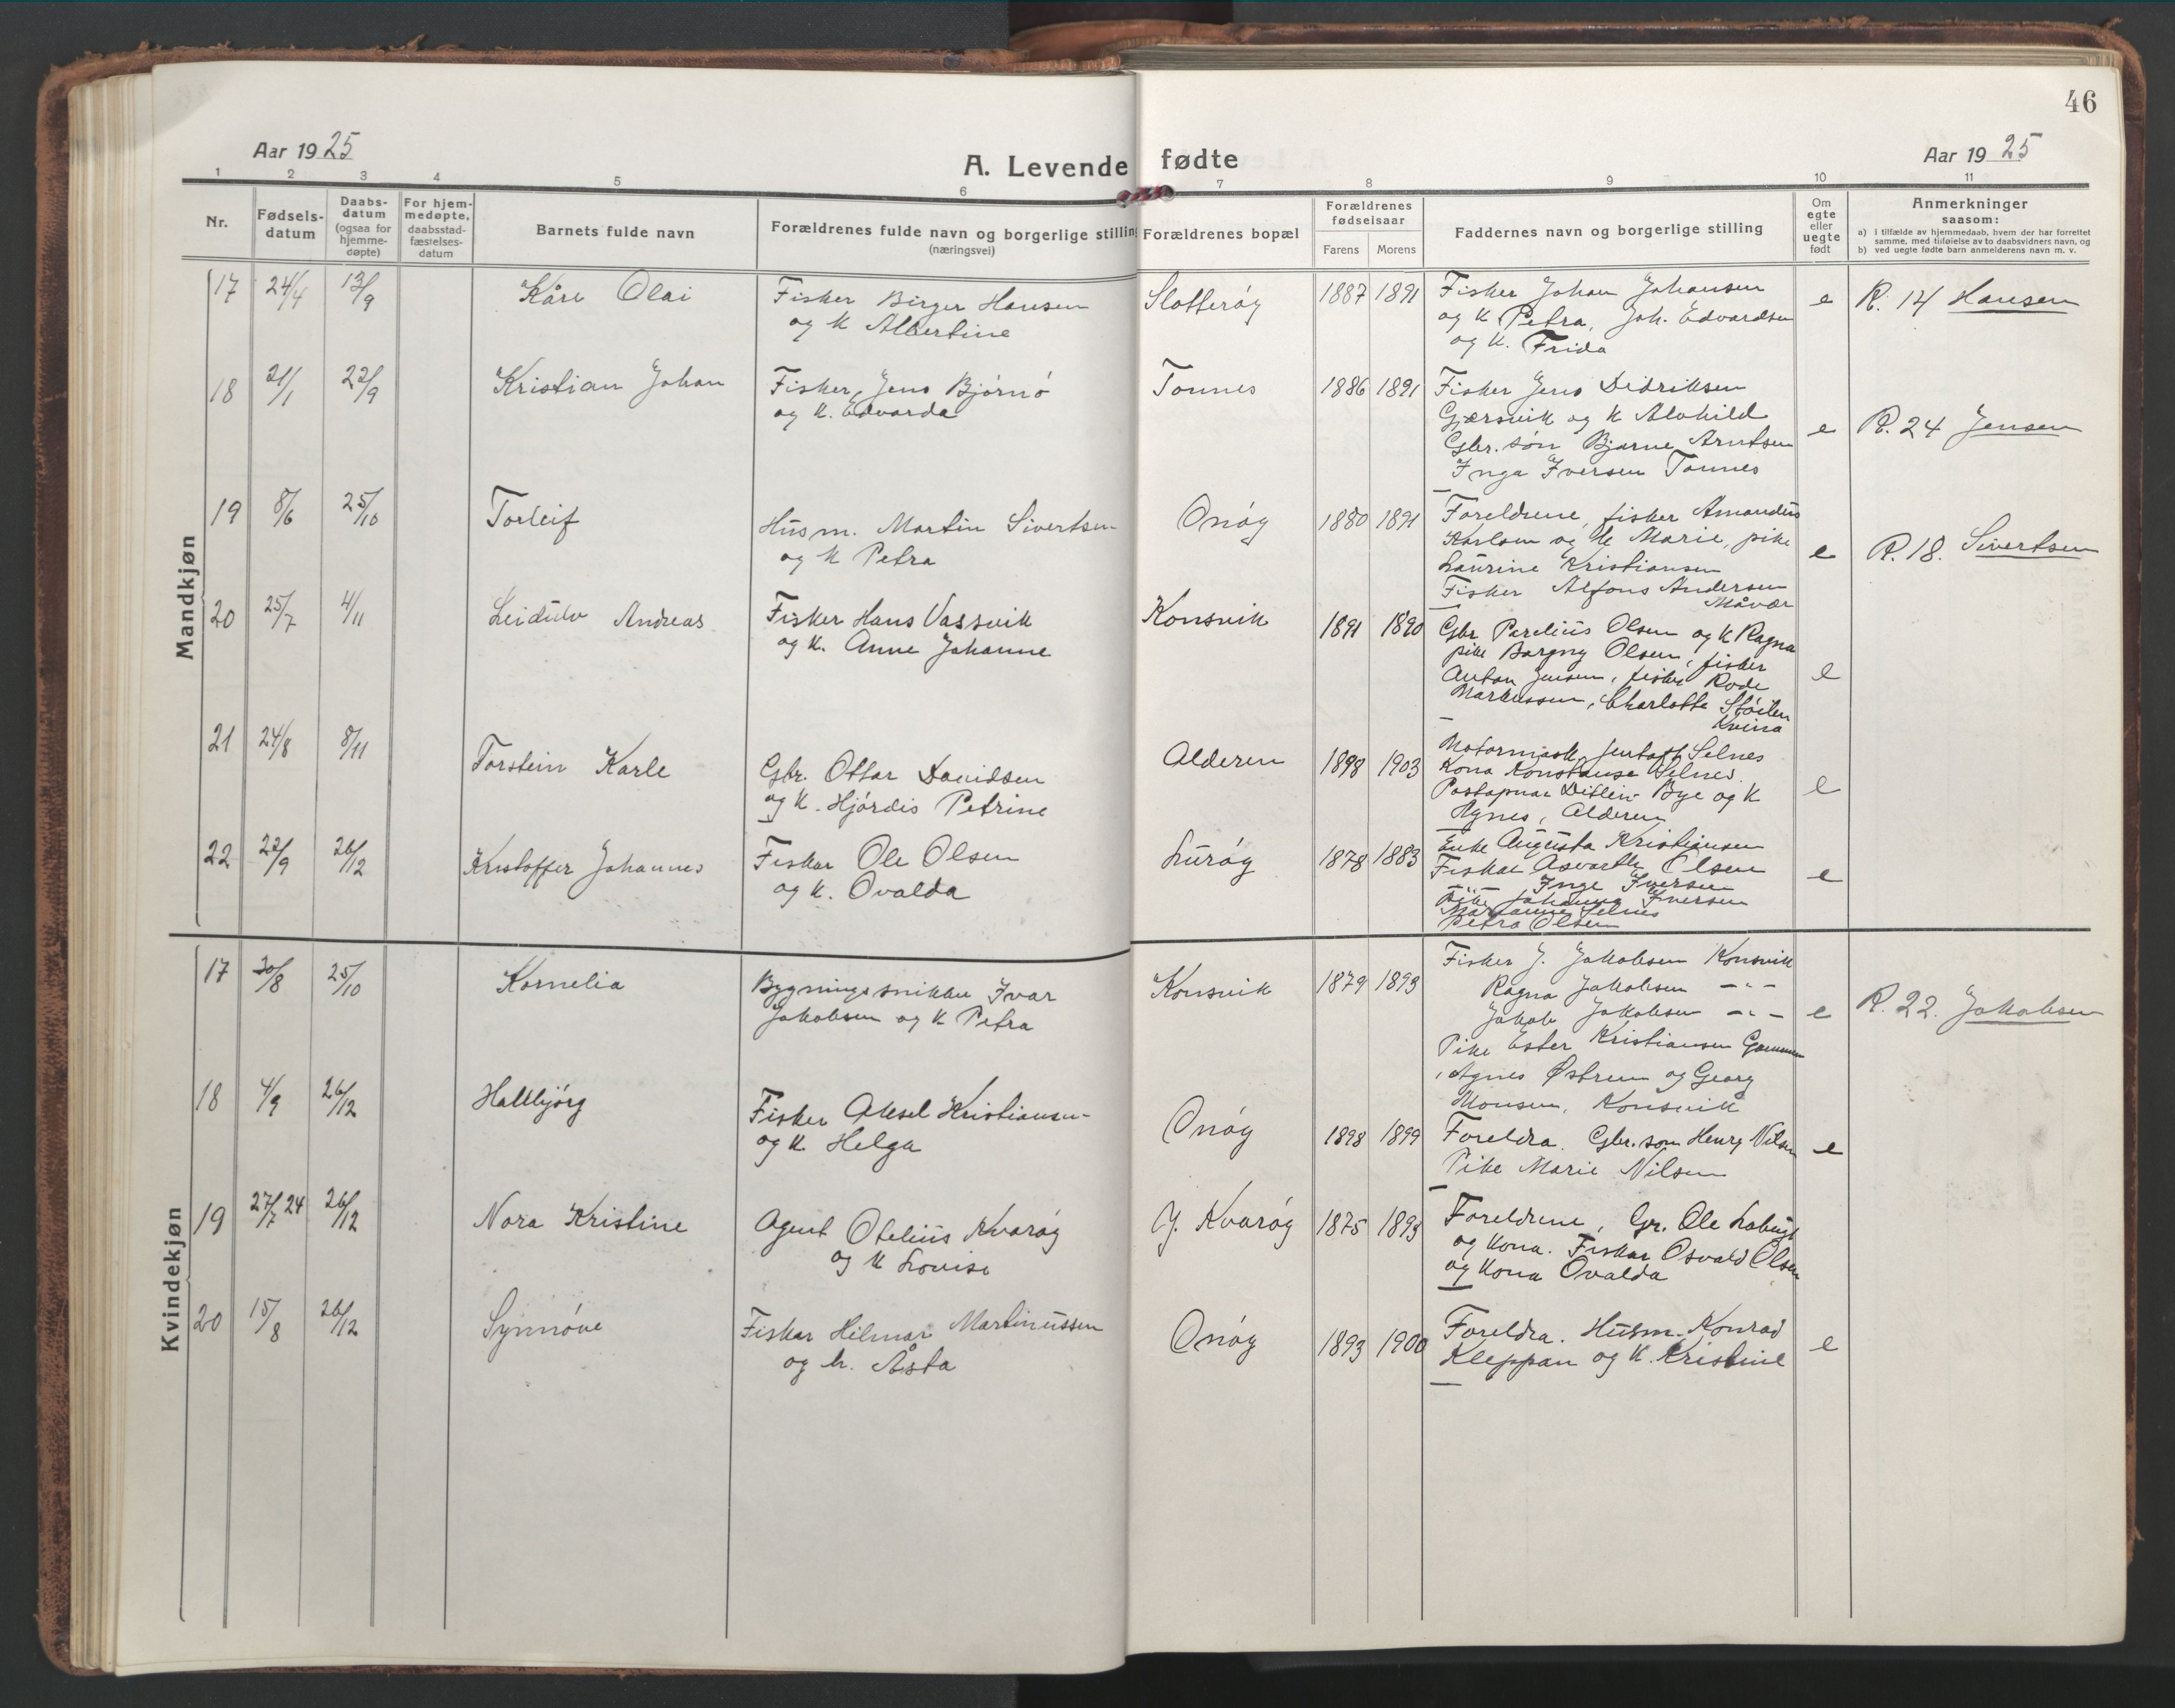 46
Aar 1925
A. Levende fødte
Aar 1925
1 2 3 4 5 6 7 8 9 10 11
Nr.
Fødsels-
datum
Daabs-
datum
(ogsaa for
hjemme-
døpte)
For hjem-
medøpte,
daabsstad-
fæstelses-
datum
Barnets fulde navn
Forældrenes fulde navn og borgerlige stilling
(næringsvei)
Forældrenes bopæl
Forældrenes
fødselsaar
Farens Morens
Faddernes navn og borgerlige stilling
Om
egte
eller
uegte
født
Anmerkninger
saasom:
a) I tilfælde av hjemmedaab, hvem der har forrettet
samme, med tilføielse av to daabsvidners navn, og
b) ved uegte fødte barn anmelderens navn m. v.
Mandkjøn
17 24/4 13/9 Kåre Olai
Fisker Birger Hansen
og k Albertine
Slotterøy 1887 1891
Fisker Johan Johansen
og k Petra, Joh. Edvardsen
og k. Frida
e R. 14 Hansen
18 21/1 22/9 Kristian Johan
Fisker, Jens Bjørnø
og k. Edvarda
Tonnes 1886 1891
Fisker Jens Didriksen
Gjærsvik og k Alvhild
Gbr. søn Bjarne Arntsen
Inga Iversen Tonnes
e R. 24 Jensen
19 8/6 25/10 Torleif
Husm. Martin Sivertsen
og k Petra
Onøy 1880 1891
Foreldrene, fisker Amandus
Karlsen og k Marie, pike
Laurine Kristiansen
Fisker Alfons Andersen
Måvær
e R. 18. Sivertsen
20 25/7 4/11 Leidulv Andreas
Fisker Hans Vassvik
og k. Anne Johanne
Konsvik 1891 1890
Gbr Perelius Olsen og k Ragna
pike Borgny Olsen, fisker
Anton Jensen, fisker Rode
Markussen, Charlotte Støiten
Kvina
e
21 24/8 8/11 Torstein Karle
Gbr. Ottar Davidsen
og k. Hjørdis Petrine
Alderen 1898 1903
Selnes
Kona Konstanse Selnes.
Postopnar Ditlev Bye og k
Agnes, Alderen
e
22 22/9 26/12 Kristoffer Johannes
Fiskar Ole Olsen
og k. Ovalda
Lurøy 1878 1883
Enke Augusta Kristiansen
Fiskar Asvarth Olsen
—"— Inge Iversen
Pike Johanna Iversen
Marianne Selnes
Petra Olsen
e
Kvindekjøn
17 30/8 25/10 Kornelia
Bygningssnikker Ivar
Jakobsen og k Petra
Konsvik 1879 1893
Fisker J. Jakobsen Konsvik
Ragna Jakobsen —"—
Jakob Jakobsen —"—
Pike Ester Kristiansen
Agnes Østrem og Georg
Monsen, Konsvik
e R. 22. Jakobsen
18 4/9 26/12 Hallbjørg
Fisker Aksel Kristiansen
og k. Helga
Onøy 1898 1899
Foreldra. Gbr. søn Henry Nilsen
Pike Marie Nilsen
e
19 27/7 24 26/12 Nora Kristine
Agent Otelius Kvarøy
og k Lovise
Y. Kvarøy 1875 1893
Foreldrene, Gr. Ole
og kona. Fiskar Osvald Olsen
og kona Ovalda
20 15/8 26/12 Synnøve
Fiskar Hilmar Martinussen
og k. Åsta
Onøy 1893 1900
Foreldra. Husm. Konrad
Kleppan og k. Kristine
e